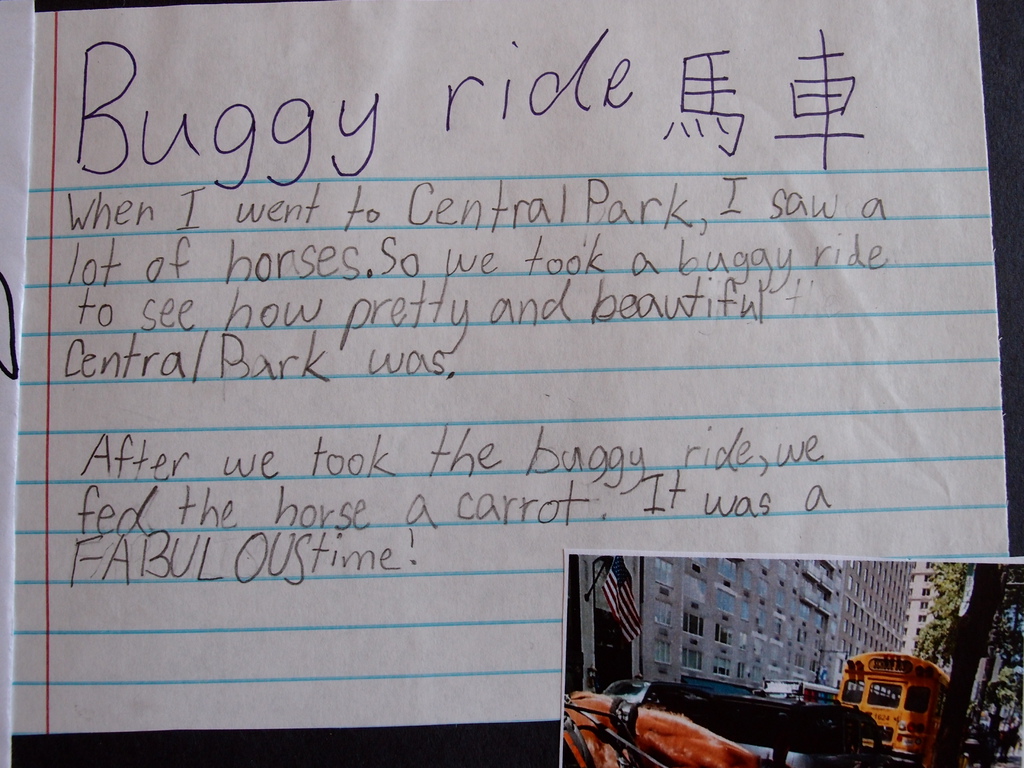 Buggy ride 馬車
When I went to Central Park, I saw a
lot of horses. So we took a buggy ride
to see how pretty and beautiful
Central Park was.
After we took the buggy ride, we
fed the horse a carrot. It was a
FABULOUS time!
1624